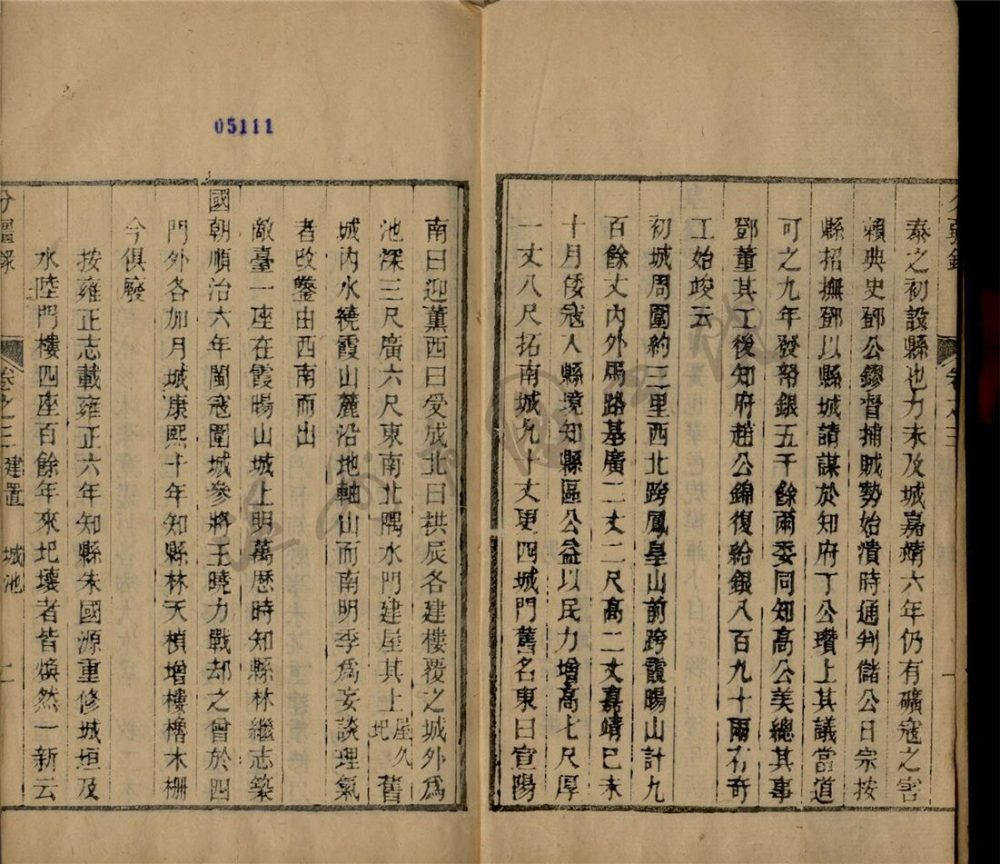 泰之初設縣也力未及城嘉靖六年仍有礦寇之害
賴典史鄧公鏐督捕賊勢始潰時通判儲公日宗按
縣招撫鄧以縣城請謀於知府丁公瓚上其議當道
可之九年發帑銀五千餘兩委同知高公美總其事
鄧董其工後知府趙公錦復給銀八百九十兩有奇
工始竣云
初城周圍約三里西北跨鳳皇山前跨霞暘山計九
百餘丈內外馬路基廣二丈二尺高二丈嘉靖己未
十月倭寇入縣境知縣區公益以民力增高七尺厚
一丈八尺拓南城九十丈更四城門舊名東曰宣陽
05111
南曰迎薰西曰受成北曰拱辰各建樓覆之城外爲
池深三尺廣六尺東南北隅水門建屋其上屋久圯舊
城內水繞霞山麓沿地軸山而南明季爲妄談理氣
者改鑿由西南而出
敵臺一座在霞暘山城上明萬歷時知縣林繼志築
國朝順治六年閩寇圍城參將王曉力戰却之曾於四
門外各加月城康熙十年知縣林天楨增樓櫓木柵
今俱廢
按雍正志載雍正六年知縣朱國源重修城垣及
水陸門樓四座百餘年來圮壞者皆煥然一新云
分疆錄
卷之三 建置 城池 二